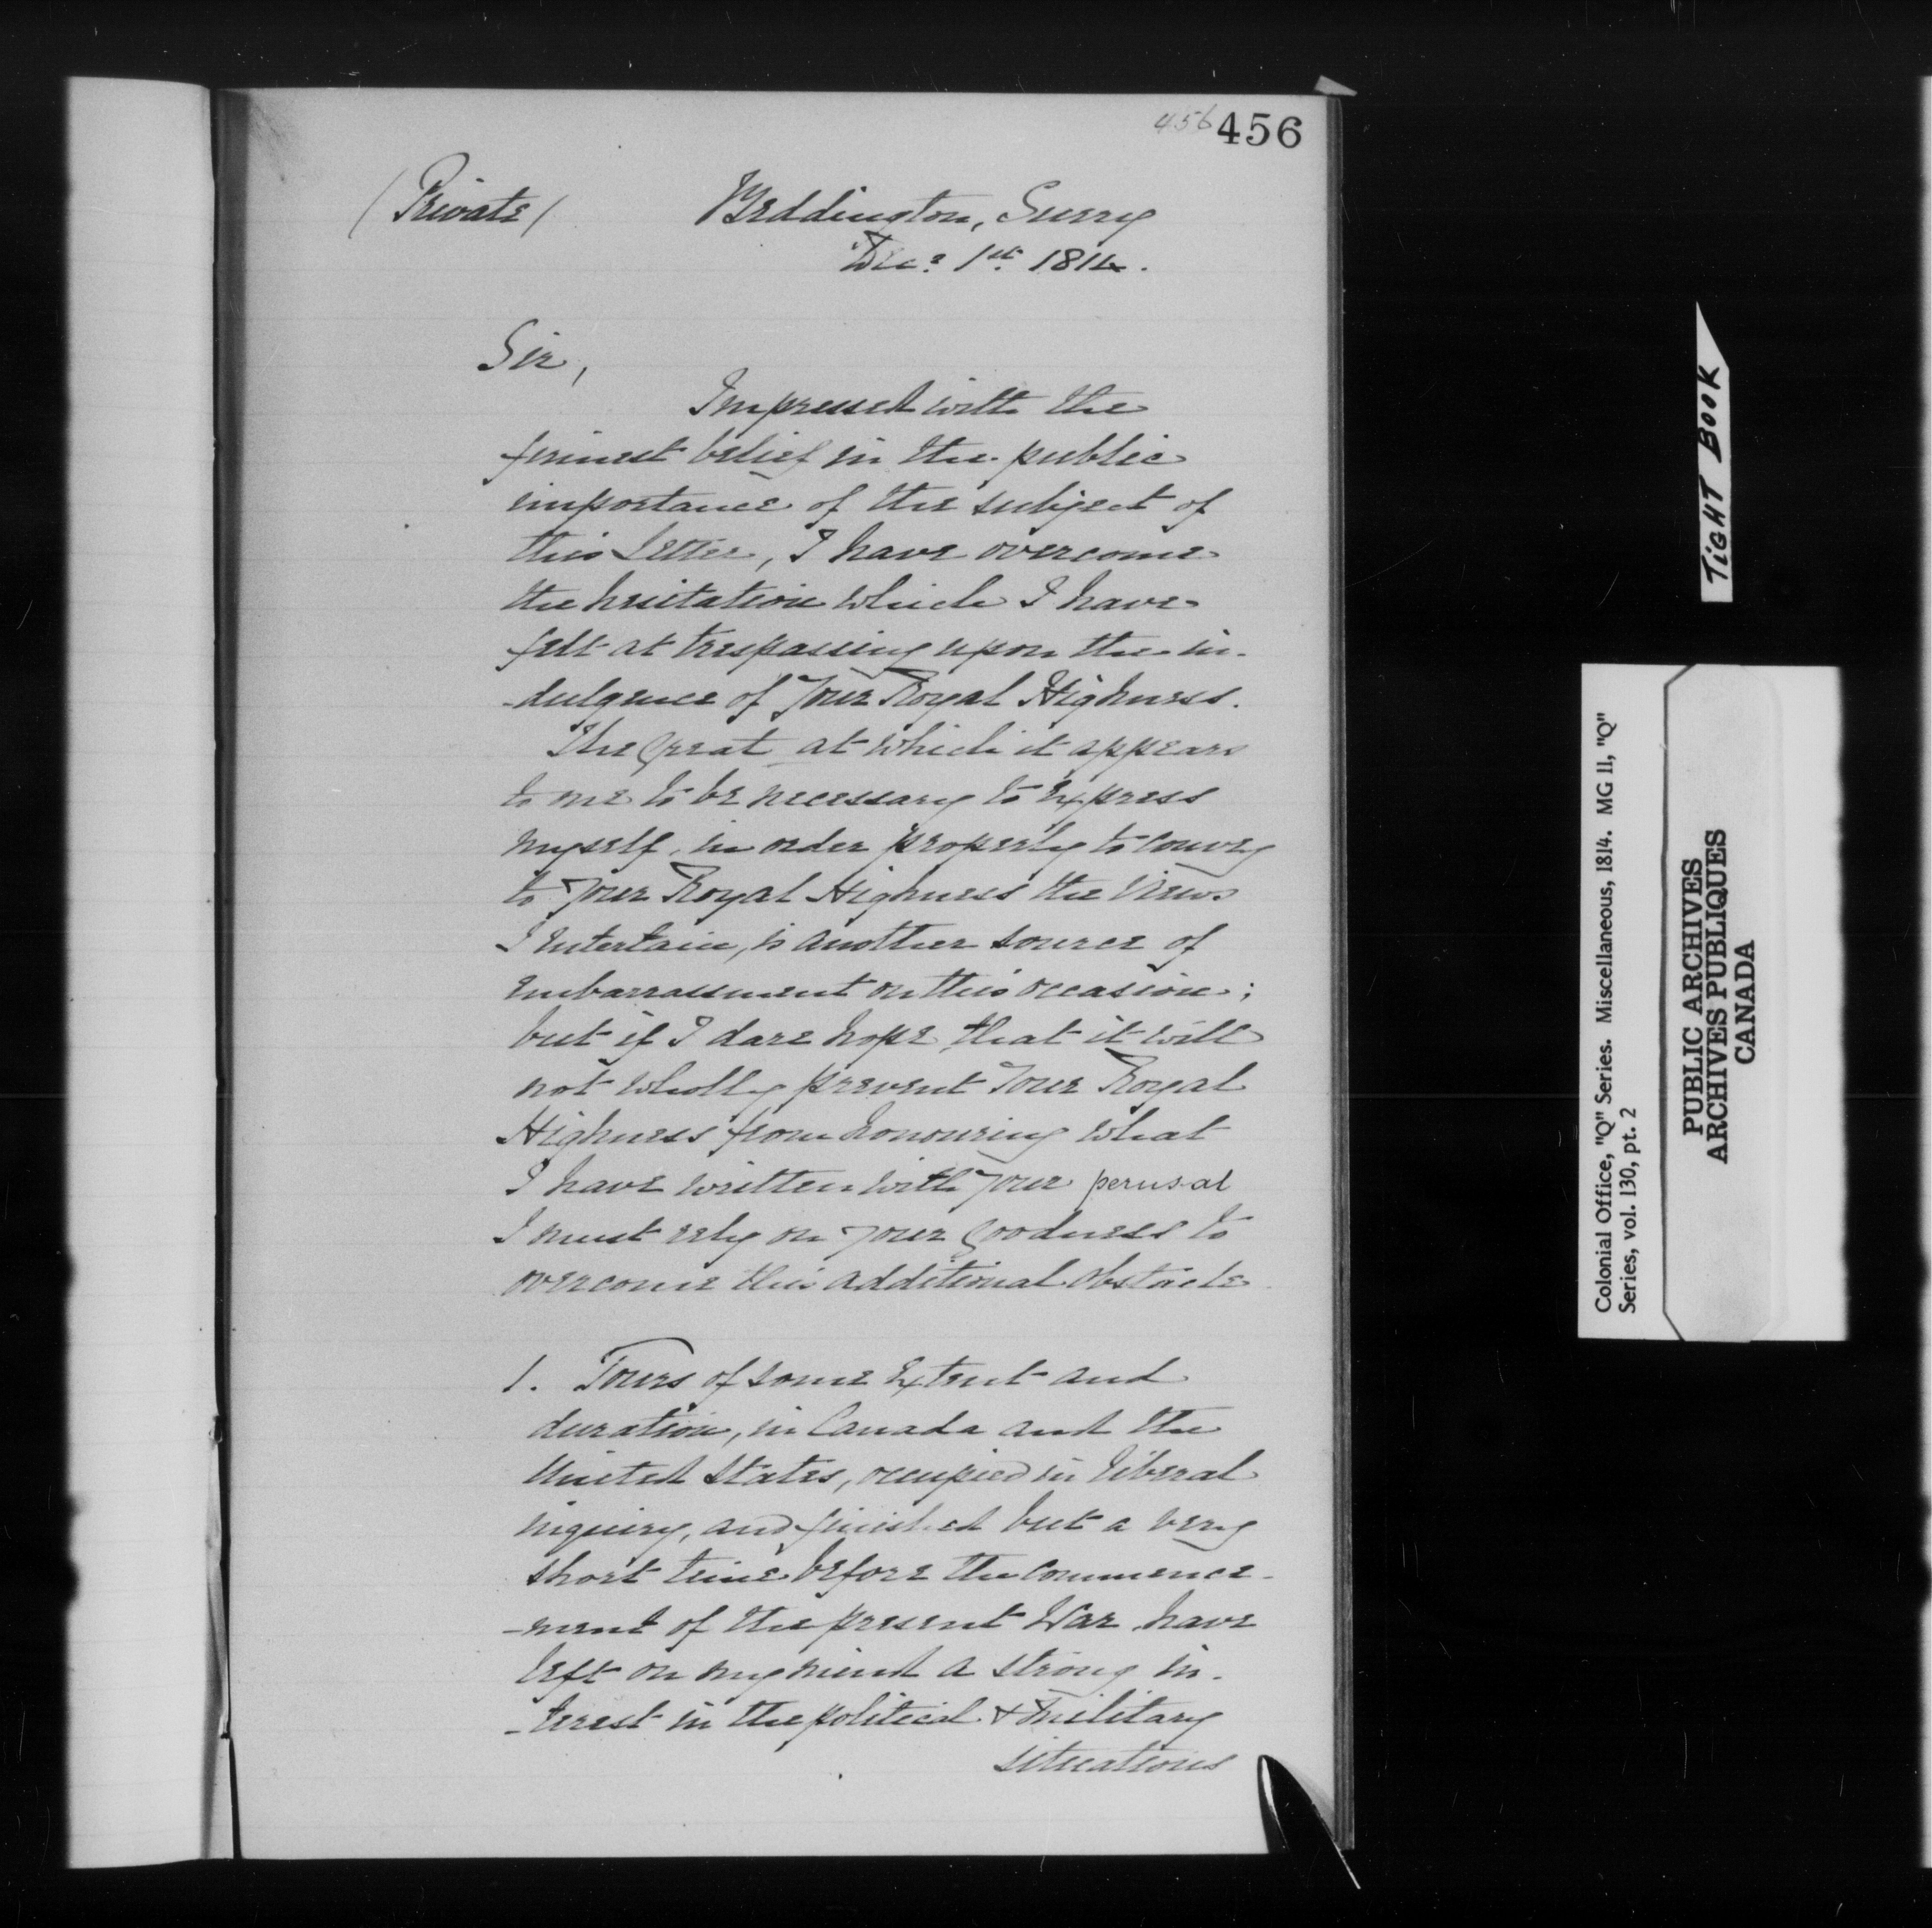 456 456
(Private) Beddington, Surry
Decr 1st 1814.
Sir,
Impressed with the
firmest belief in the public
importance of the subject of
this Letter, I have overcome
the hesitation which I have
felt at trespassing upon the in-
-dulgence of Your Royal Highness.
The great at which it appears
to me to be necessary to express
myself, in order properly to convey
to Your Royal Highness the views
I entertain, is another source of
embarrassment on this occasion;
but if I dare hope, that it will
not wholly prevent Your Royal
Highness from honouring what
I have written with your perusal
I must rely on your goodness to
overcome this additional obstacle
1. Tours of some extent and
duration, in Canada and the
United States, occupied in liberal
inquiry, and finished but a very
short time before the commence-
-ment of the present War, have
left on my mind a strong in-
-terest in the political & military
situations
TiGHT BOOK
Colonial Office, "Q" Series. Miscellaneous, 1814. MG 11, "Q"
Series, vol. 130, pt. 2
PUBLIC ARCHIVES
ARCHIVES PUBLIQUES
CANADA